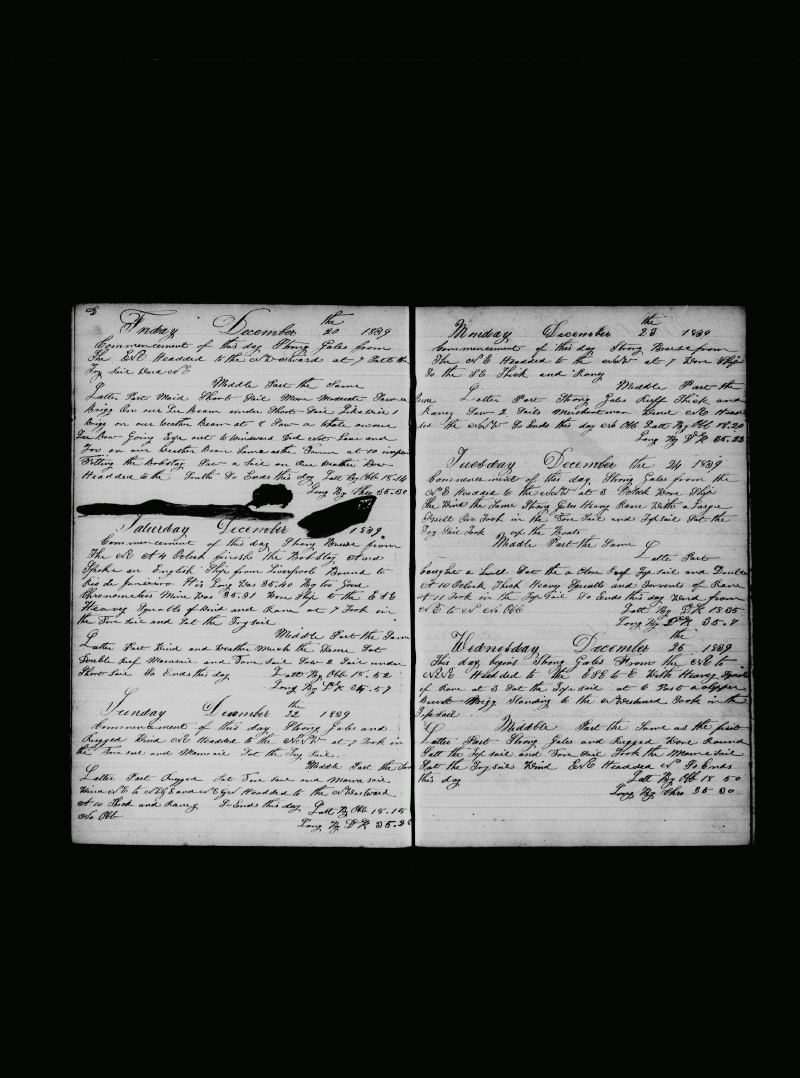 8
Friday December the 20 1839
Commencement of this day Strong Gales from
The ENE Headded to the NEward at 7 Sat the
Try Sail Wind NE
Middle Part the Same
Latter Part Maid Short Sail More Moderate Saw a
Brigg On our Lee Beam under Short Sail Likewise 1
Brigg on our Weather Beam at 8 Saw a Whale on our
Lee Bow Going Eyes out to Windward Did Not Loar and
for on our Weather Bow at 10
Fitting the Bobstay Saw a Sail on Our Weather Bow
Headded to the South So Ends this day Latt By Obb 18.14
Long By Chro 35.30
Saturday December 1839
Commencement of this day Strong Breese from
The NE At 4 Oclock finishd the Bobstay And
Spoke an English Ship from Liverpool Bound to
Rio de Janeiro His Long Was 35.40 By too Good
Chronometers Mine Was 35.31 Wore Ship to the ESE
Heavey Squalls of Wind and Rane at 7 Took in
the Fore Sail and Sat the Trysail
Middle Part the Same
Latter Part Wind and Weather Much the Same Sat
Double Reef Mainsail and Fore Sail Saw 2 Sail under
Short Sail So Ends this day Latt By Obb 18.52
Long By DR 35.57
Sunday December the 22 1839
Commencement of this day Strong Gales and
Rugged Wind NE Headded to the NNW at 7 Took in
the Fore Sail and Mainsail Sat the Try Sail
Middle Part the Same
Latter Part Rugged Sat Fore Sail and Maine Sail
Wind NE to Headded to the NWestward
At 10 Thick and Raney So Ends this day Latt By Obb 18.15
No Obb Long By DR 35.28
Monday December the 23 1839
Commencement of this day Strong Breese from
The NE Headded to the NNW at 7 Wore Ship
to the SE Thick and Raney
Middle Part the
Same Latter Part Strong Gales Ruff Thick and
Raney Saw 2 Sails Merchantman Wind NE Head
ded the NNW So Ends this day No Obb Latt By Obb 18.20
Long By DR 35.23
Tuesday December the 24 1839
Commencement of this day Strong Gales from the
NE Headded to the NNW at 3 Oclock Wore Ship
The Wind the Same Strong Gales Heavy Rane With a Large
Swell On Took in the Fore Sail and Topsail Sat the
Try Sail Took up the Boats
Middle Part the Same Latter Part
bought a Lull Sat the a Close Reef Topsail and Double
At 10 Oclock Thick Heavy Squalls and Torrents of Rane
At 11 Took in the Top Sail So Ends this day Wind from
NE to N No Obb Latt By DR 18.05
Long By DR 35.7
Wednesday December the 25 1839
This day begins Strong Gales From the NE to
NNE Headded to the ESE to E With Heavey Squalls
of Rane at 3 Sat the Topsail at 6 Past a Clipper
Built Brigg Standing to the NWestward Took in the
Topsail
Middle Part the Same as the first
Latter Part Strong Gales and Rugged Wore Round
Satt the Top sail and Fore Sail Took the Maine sail
Sat the Try sail Wind ENE Headded N So Ends
this day Latt By Obb 18 50
Long By Chro 35 30